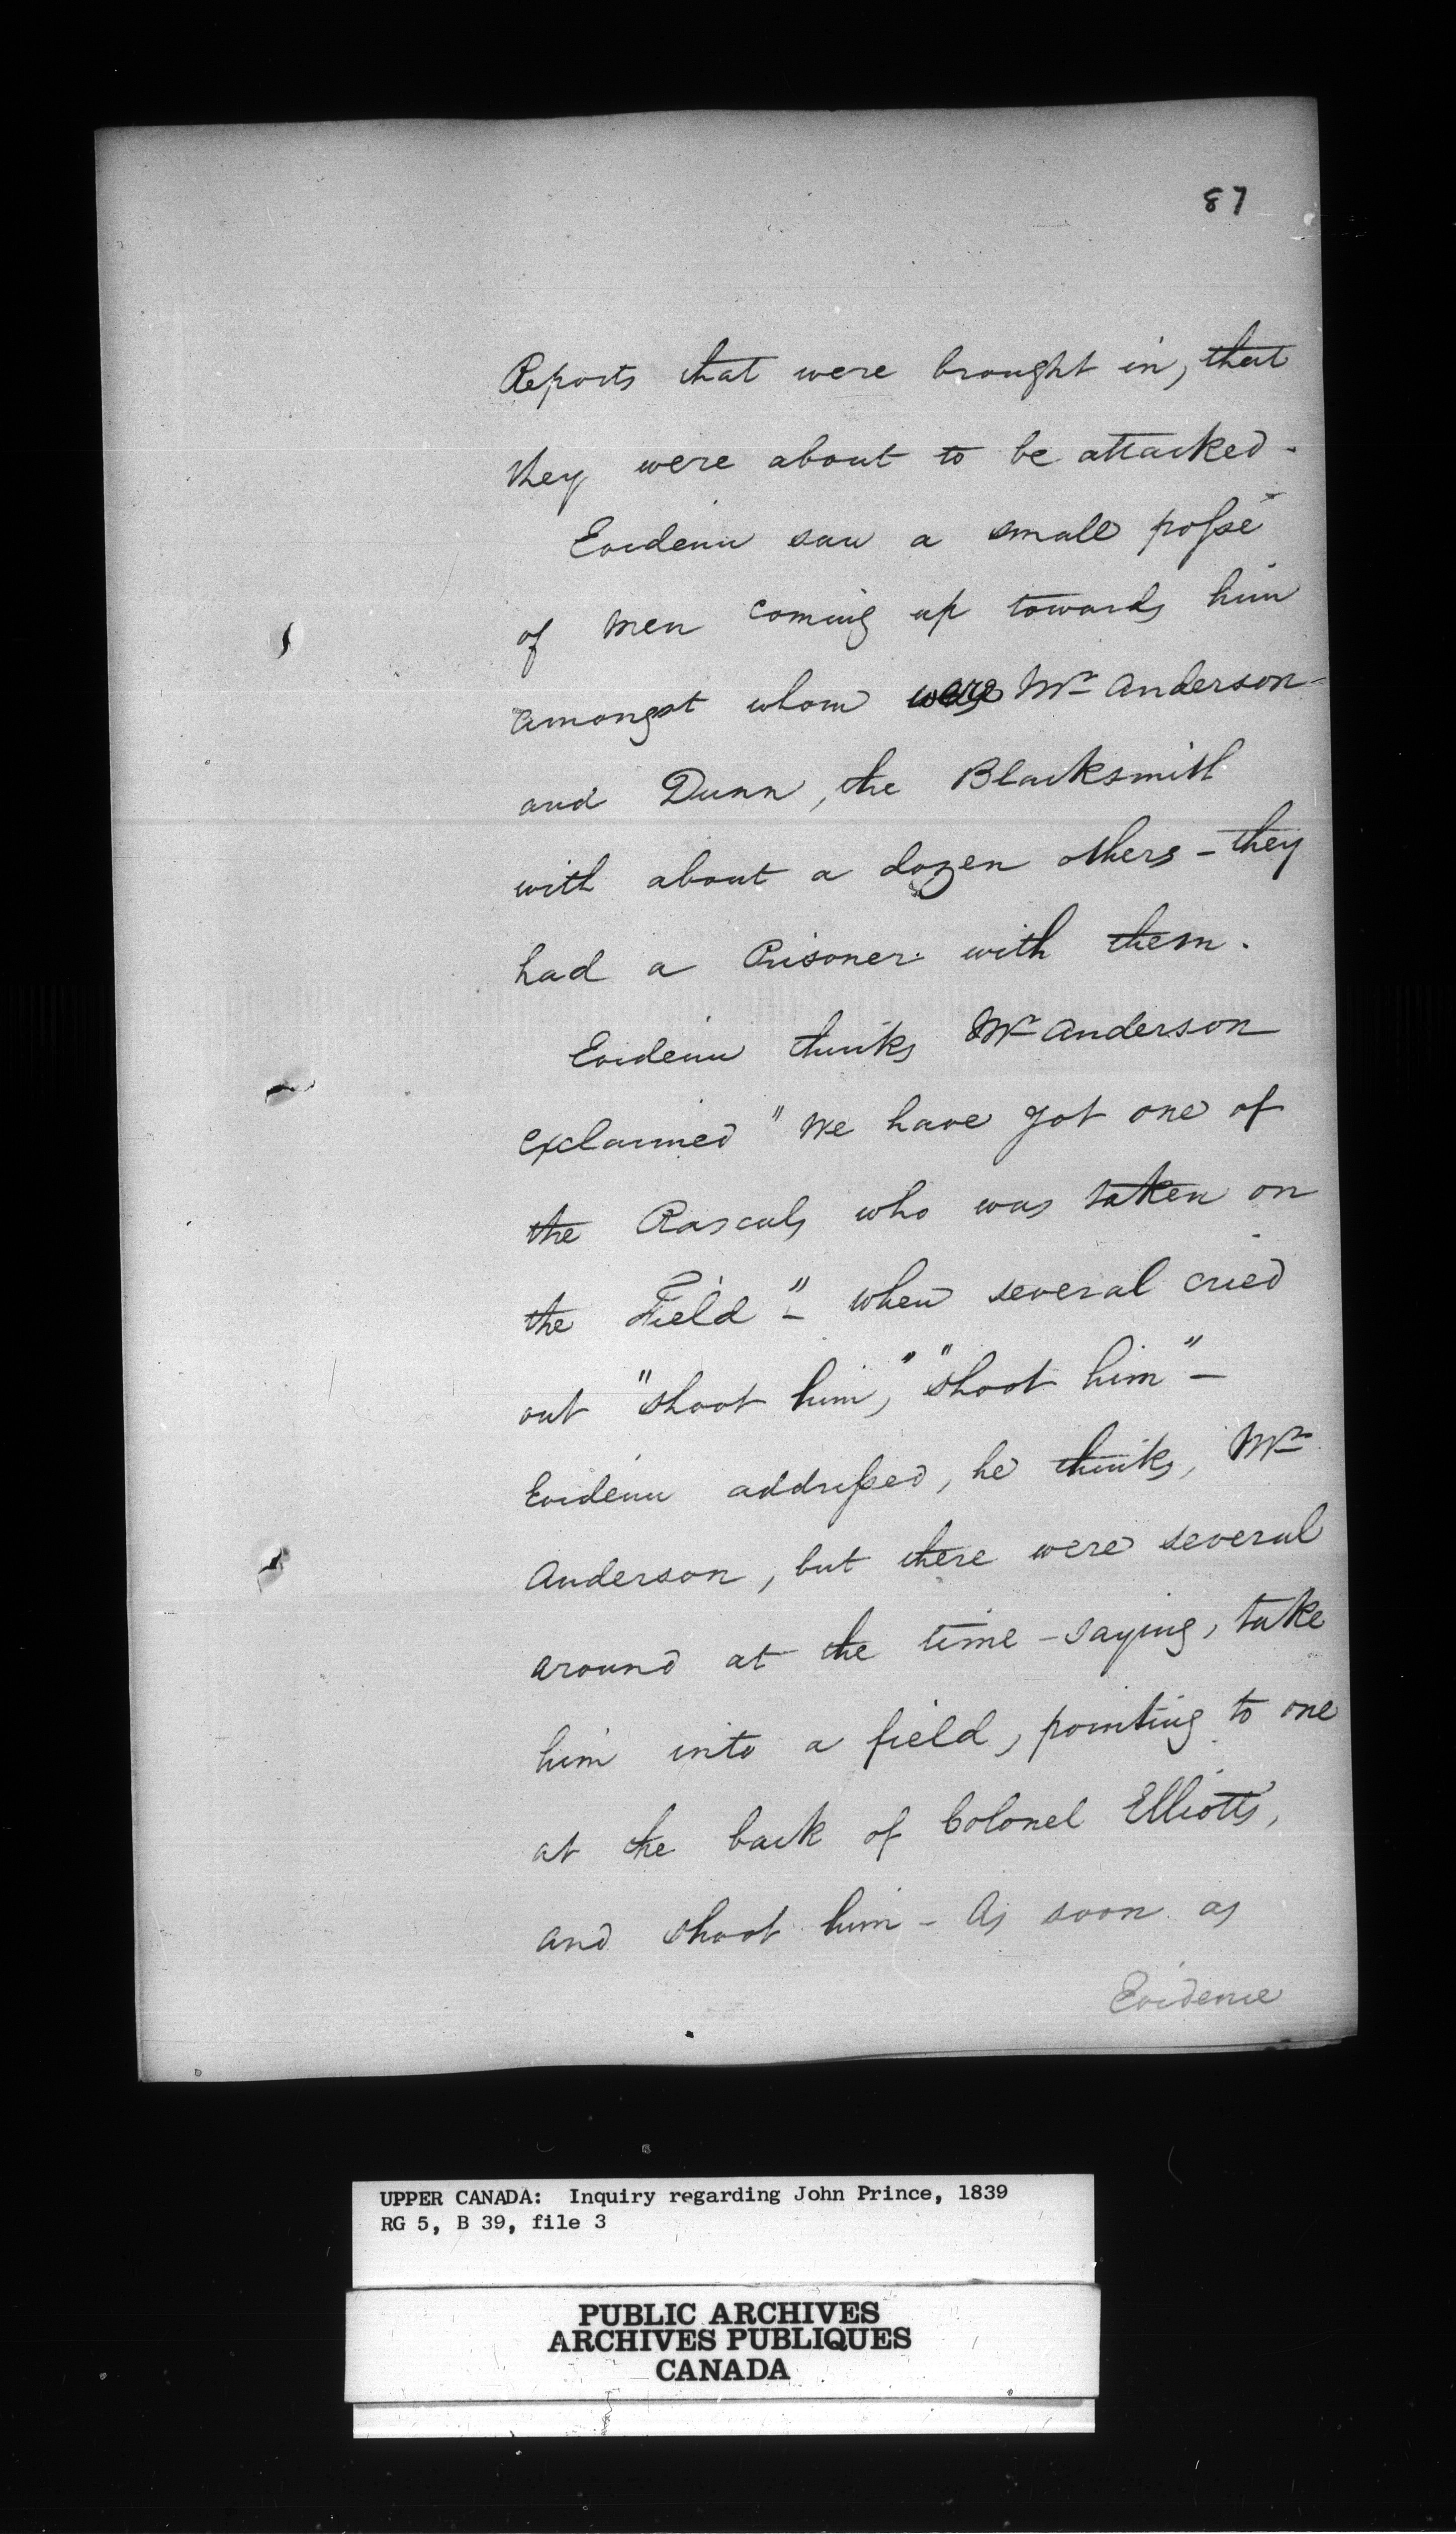 87
Reports that were brought in, that
they were about to be attacked.
Evidence saw a small posse
of Men coming up towards him
amongst whom were Mr Anderson
and Dunn, the Blacksmith
with about a dozen others - they
had a Prisoner with them.
Evidence thinks Mr Anderson
exclaimed "We have got one of
the Rascals who was taken on
the Field" - when several cried
out "shoot him," "shoot him" -
Evidence addressed, he thinks, Mr
Anderson, but there were several
around at the time - saying, take
him into a field, pointing to one
at the back of Colonel Elliotts,
and shoot him - As soon as
Evidence
UPPER CANADA: Inquiry regarding John Prince, 1839
RG 5, B 39, file 3
PUBLIC ARCHIVES
ARCHIVES PUBLIQUES
CANADA